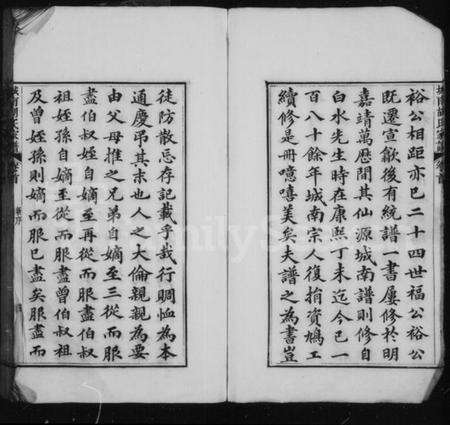 裕公相距亦已二十四世福公裕公
既遷宣歙後有統譜一書屢修於明
嘉靖萬歷間其仙源城南譜則修自
白水先生時在康熙丁未迄今已一
百八十餘年城南宗人復捐資鳩工
續修是冊噫嘻美矣夫譜之為書豈
徒防散忘存記載乎哉行賙恤為本
通慶弔其末也人之大倫親親為要
由父母推之兄弟自嫡至三從而服
盡伯叔姪自嫡至再從而服盡伯叔
祖姪孫自嫡至從而服盡曾伯叔祖
及曾姪孫則嫡而服已盡矣服盡而